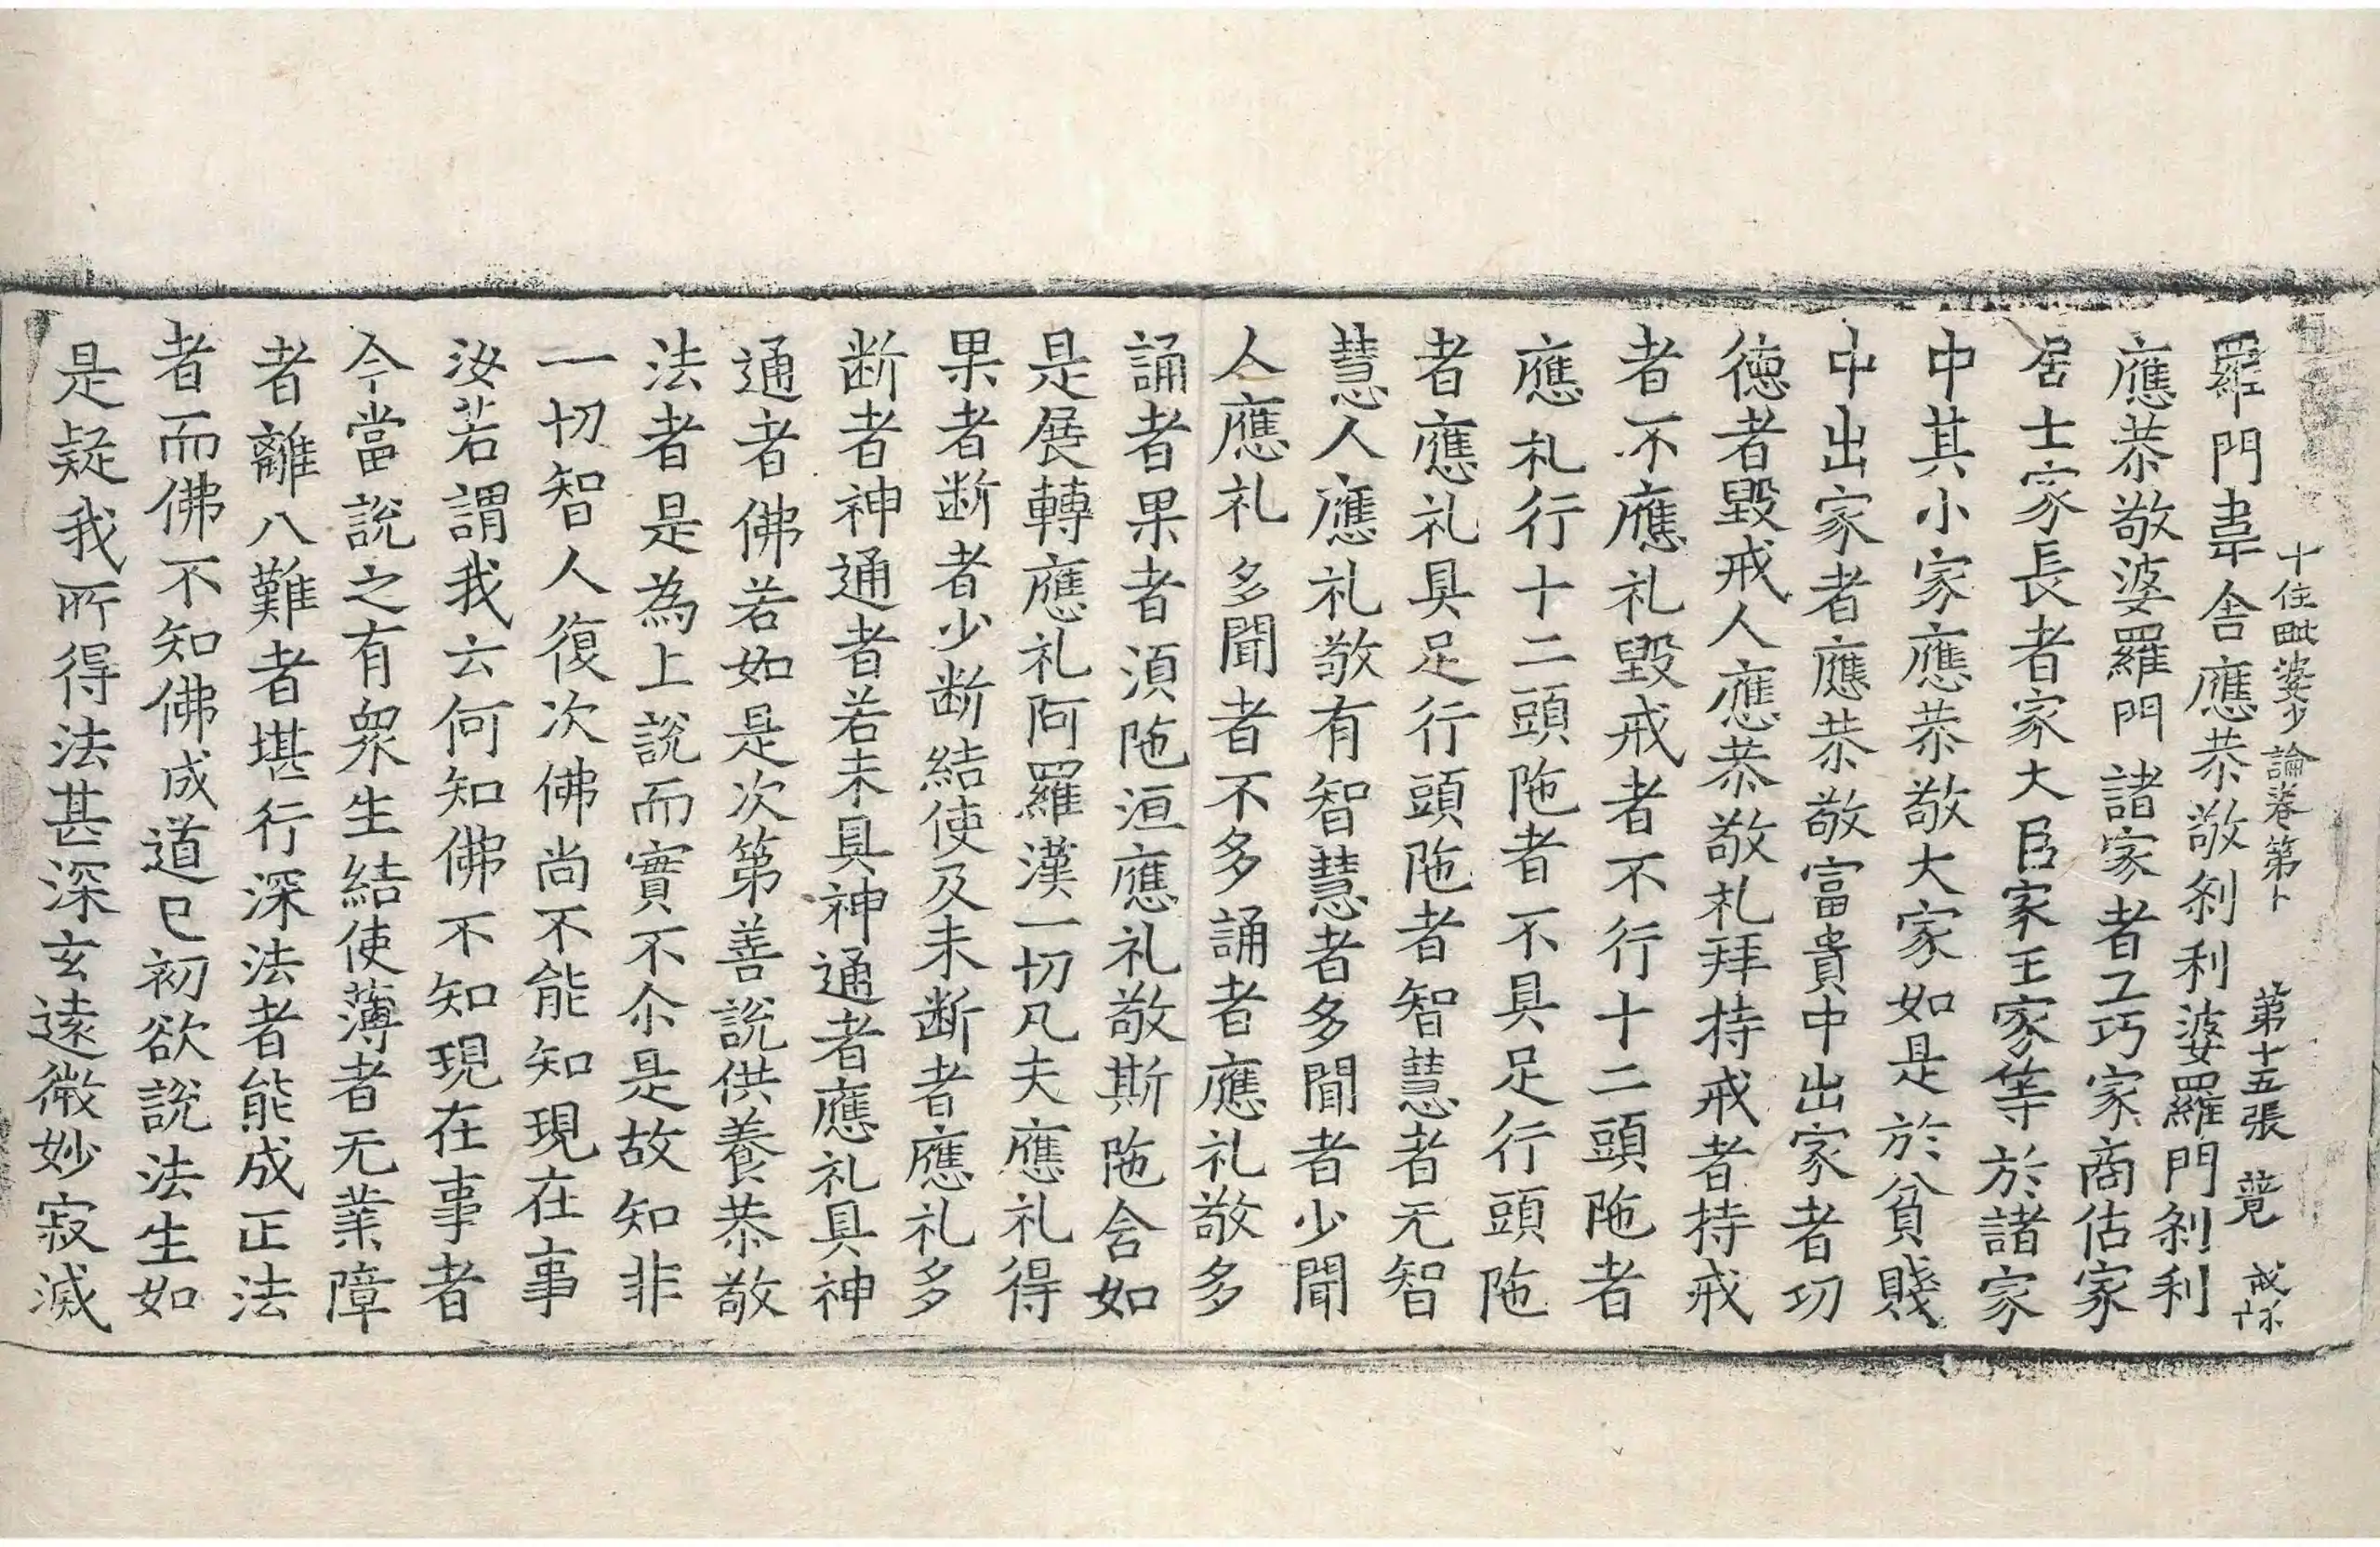 十住毗婆沙論卷第十 第十五張
羅門韋舍應恭敬刹利婆羅門刹利
應恭敬婆羅門諸家者工巧家商估家
居士家長者家大臣家王家等於諸家
中其小家應恭敬大家如是於貧賤
中出家者應恭敬富貴中出家者功
德者毀戒人應恭敬礼拜持戒者持戒
者不應礼毀戒者不行十二頭陁者
應礼行十二頭陁者不具足行頭陁
者應礼具足行頭陁者智慧者无智
慧人應礼敬有智慧者多聞者少聞
人應礼多聞者不多誦者應礼敬多
誦者果者須陁洹應礼敬斯陁含如
是展轉應礼阿羅漢一切凡夫應礼得
果者断者少断結使及未断者應礼多
断者神通者若未具神通者應礼具神
通者佛若如是次第善說供養恭敬
法者是為上說而實不尒是故知非
一切智人復次佛尚不能知現在事
汝若謂我云何知佛不知現在事者
今當說之有衆生結使薄者无業障
者離八難者堪行深法者能成正法
者而佛不知佛成道已初欲說法生如
是疑我所得法甚深玄遠微妙寂滅